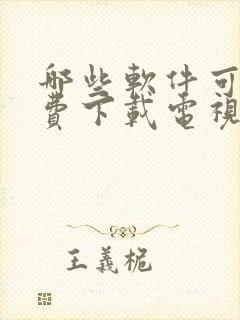 哪些軟件可
費下載電視
王義桅